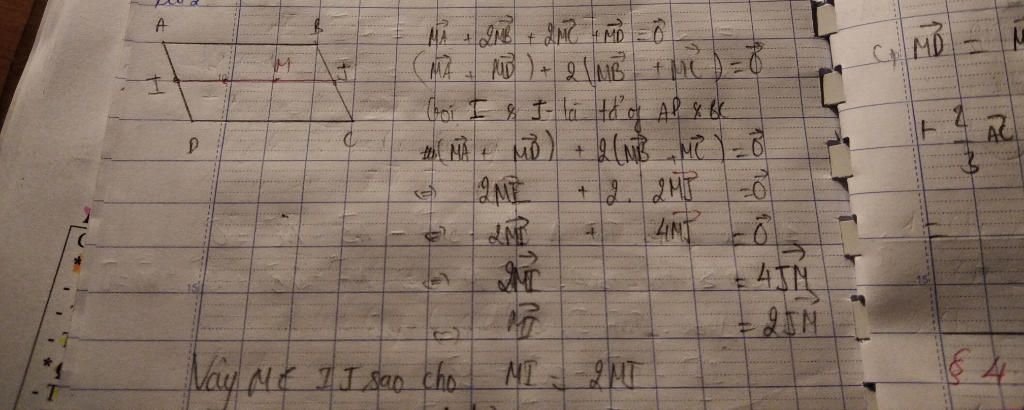 A B
M
I J
D C
MA→ + 2MB→ + 2MC→ + MD→ = 0→
(MA→ + MD→) + 2(MB→ + MC→) = 0→
Gọi I & J là tđ of AD & BC
(MA→ + MD→) + 2(MB→ + MC→) = 0→
⇔ 2MI→ + 2. 2MJ→ = 0→
⇔ 2MI→ + 4MJ→ = 0→
⇔ 2MI→ = 4JM→
⇔ MI→ = 2JM→
Vậy M ∈ IJ sao cho MI = 2MJ
c, MD→ =
+ 2/3 AC→
=
§ 4